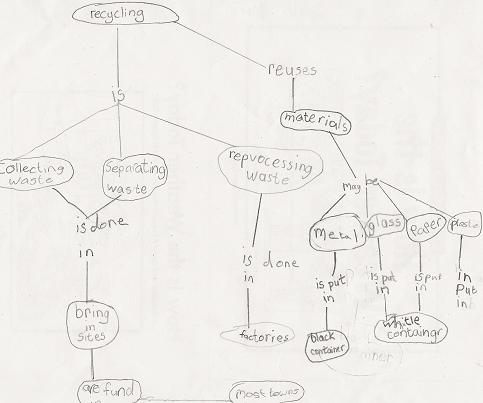 recycling
reuses
is
materials
Collecting
waste
Separating
waste
reprocessing
waste
May be
is done
in
metal
glass
Paper
plastic
is done
in
is put
in
is put
in
is put
in
in
Put
in
bring
in
sites
factories
black
container
white
container
are fund
in
most towns